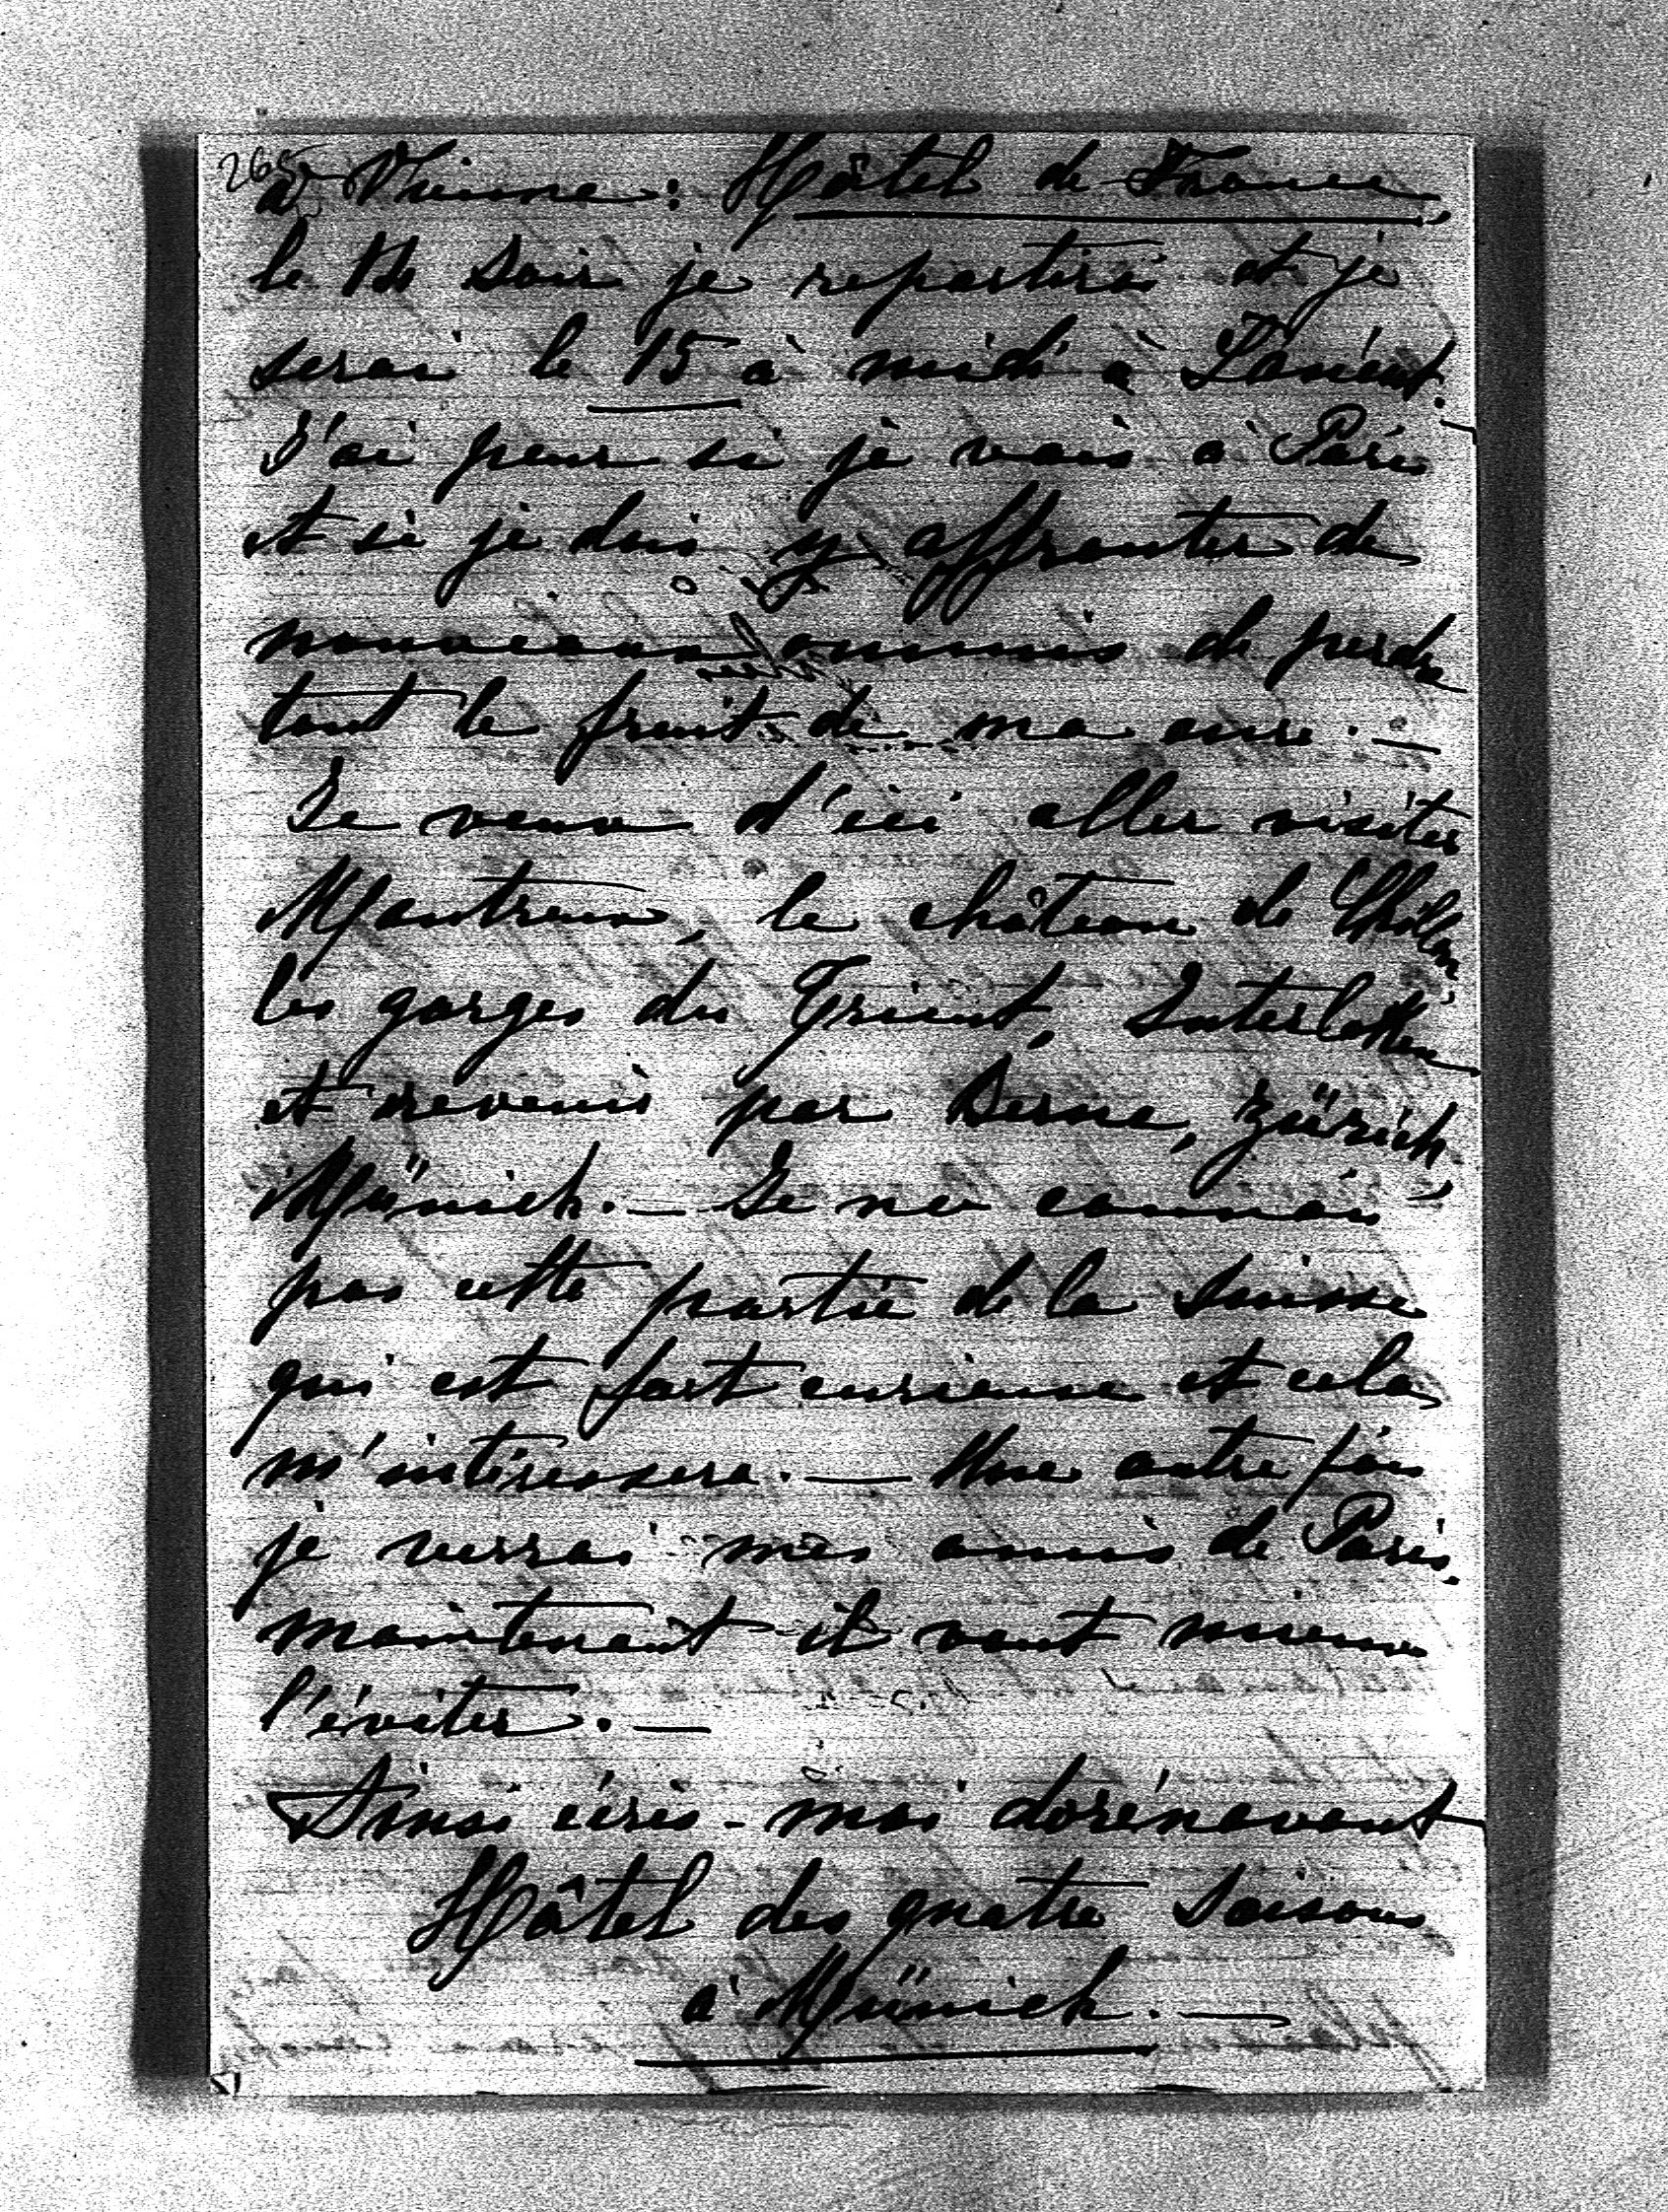 265
à Vienne: Hôtel de France,
le soir je repartirai et je
serai le 15 à midi à Łańcut.
J'ai peur si je vais à Paris
et si je dois y affronter de
nouveaux ennuis de perdre
tout le fruit de ma cure. —
Je veux d'ici aller visiter
Montreux, le château de Chillon,
les gorges du Trient, Interlaken
et revenir par Berne, Zürich,
Münich. — Je ne connais
pas cette partie de la Suisse
qui est fort curieuse et cela
m'intéressera. — Une autre fois
je verrai mes amis de Paris,
maintenant il vaut mieux
l'éviter. —
Ainsi écris-moi dorénavant
Hôtel des quatre Saisons
à Münich. —